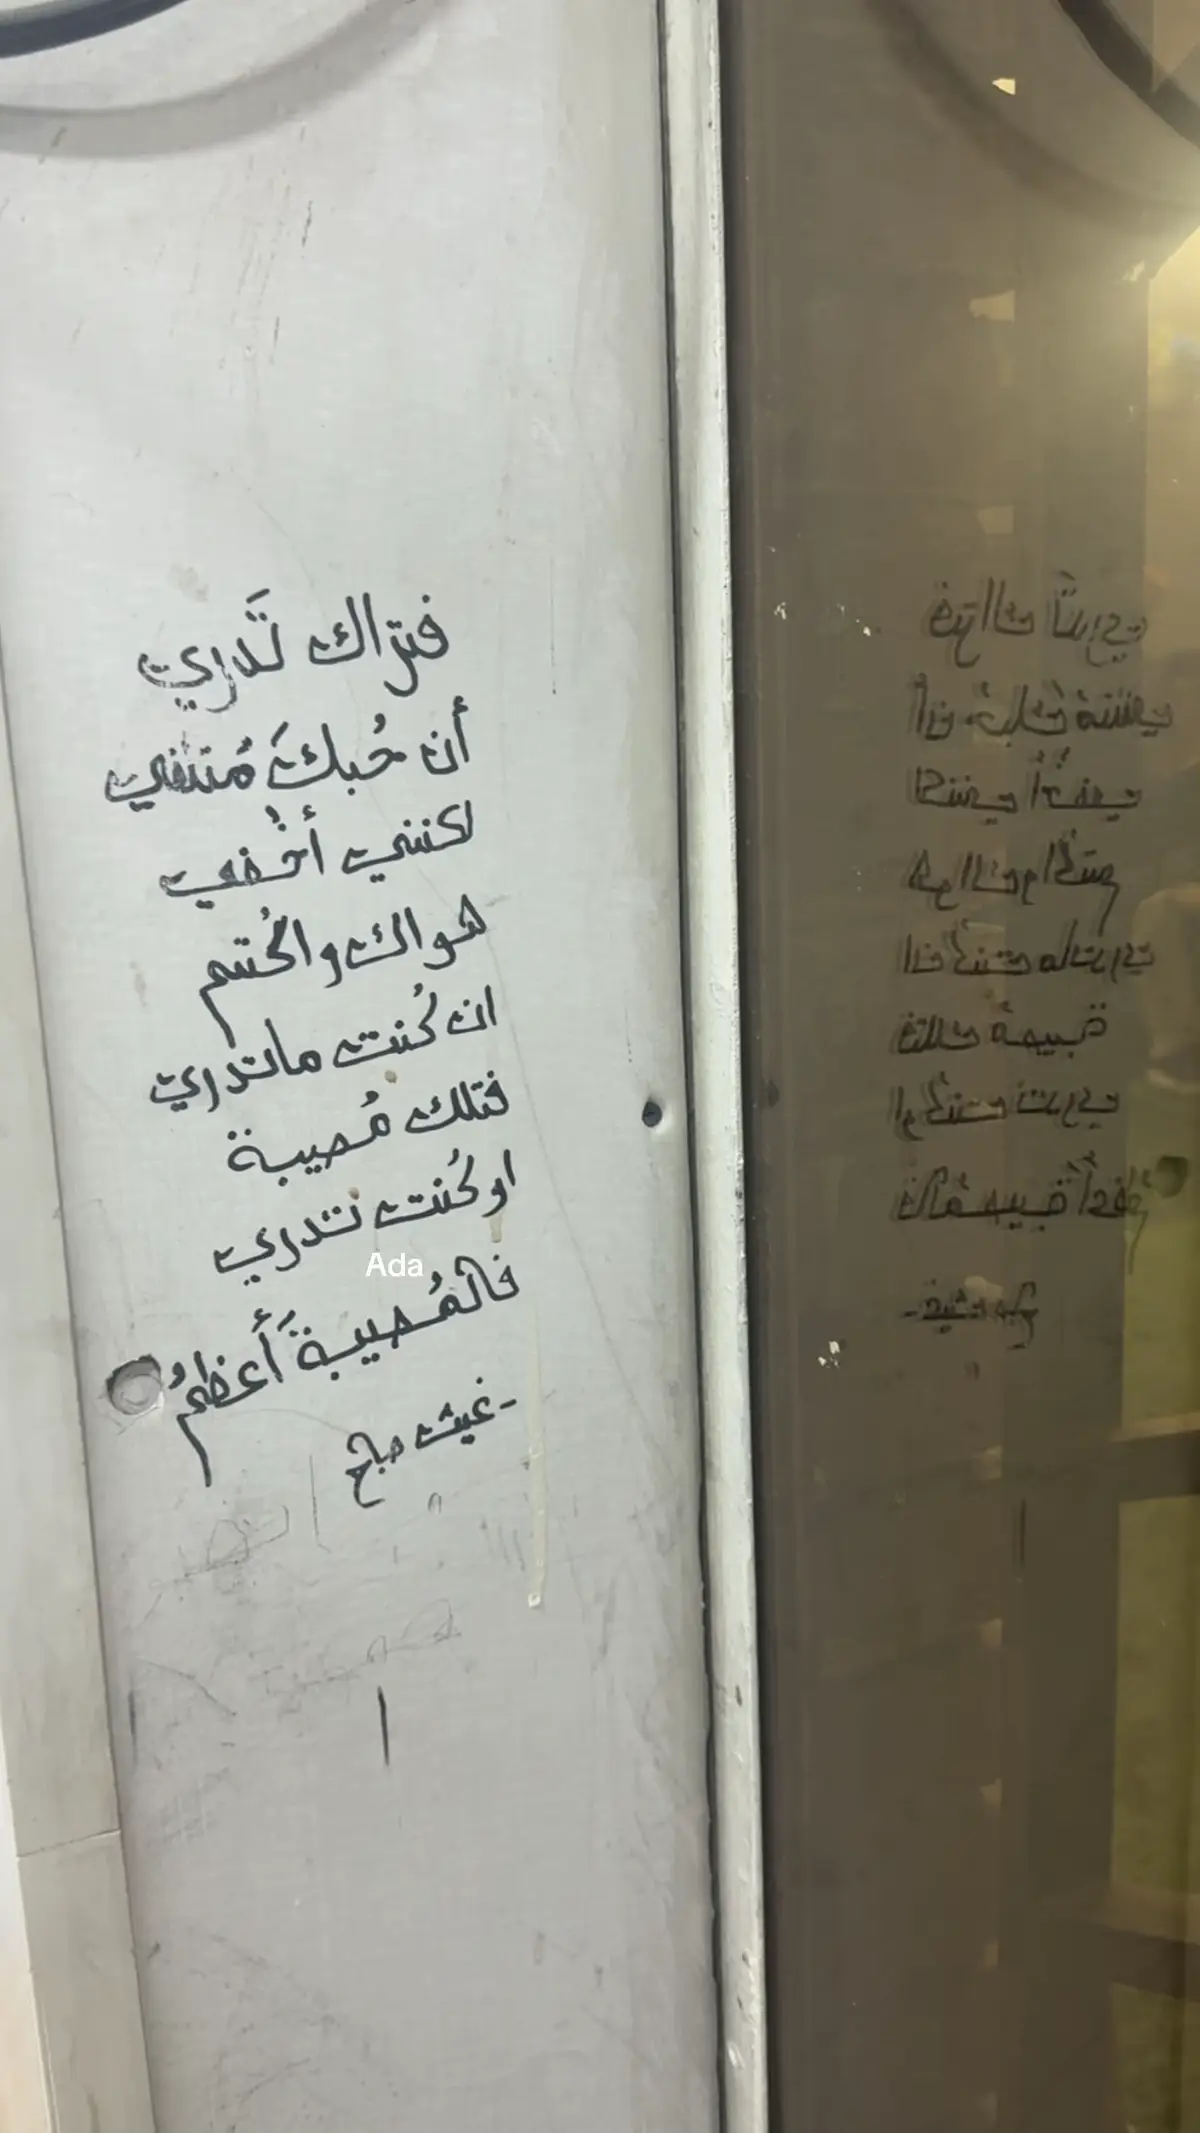 فتراك تَدري
أن حُبكَ مُتلفي
لكنني أُخفي
هواك واكُتم
ان كُنت ماتدري
فتلك مُصيبة
او كُنت تدري
Ada
فالمُصيبةَ أَعظمُ
- غيث